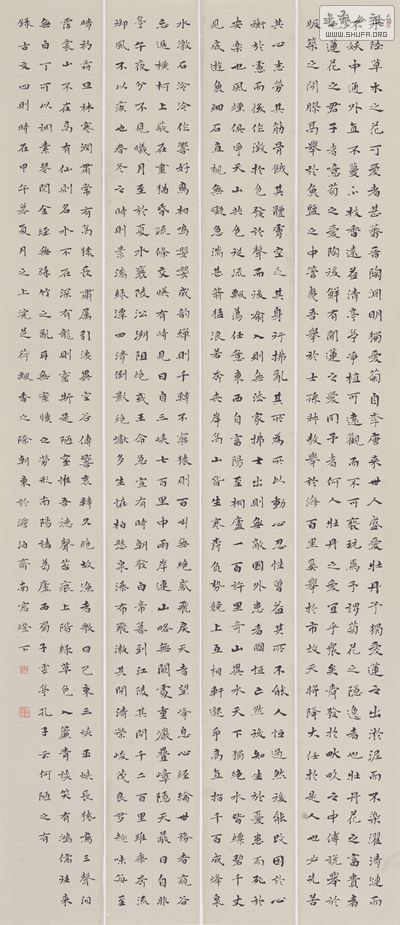 水陸草木之花可愛者甚蕃晉陶淵明獨愛菊自李唐來世人盛愛牡丹予獨愛蓮之出於泥而不染濯清漣而
不妖中通外直不蔓不枝香遠益清亭亭淨植可遠觀而不可褻玩焉予謂菊花之隱逸者也牡丹花之富貴者
也蓮花之君子者也噫菊之愛陶後鮮有聞蓮之愛同予者何人牡丹之愛宜乎衆矣舜發於畎畝之中傅說舉於
版築之間膠鬲舉於魚鹽之中管夷吾舉於士孫叔敖舉於海百里奚舉於市故天將降大任於是人也必先苦
其心志勞其筋骨餓其體膚空乏其身行拂亂其所為所以動心忍性曾益其所不能人恒過然後能改困於心
衡於慮而後作徵於色發於聲而後喻入則無法家拂士出則無敵國外患者國恒亡然後知生於憂患而死於
安樂也風煙俱淨天山共色從流飄蕩任意東西自富陽至桐廬一百許里奇山異水天下獨絕水皆縹碧千丈
見底遊魚細石直視無礙急湍甚箭猛浪若奔夾岸高山皆生寒樹負勢競上互相軒邈爭高直指千百成峰泉
水激石泠泠作響好鳥相鳴嚶嚶成韻蟬則千轉不窮猿則百叫無絕鳶飛戾天者望峰息心經綸世務者窺谷
忘返橫柯上蔽在晝猶昏疏條交映有時見日自三峽七百里中兩岸連山略無闕處重巖疊嶂隱天蔽日自非
亭午夜分不見曦月至於夏水襄陵沿溯阻絕或王命急宣有時朝發白帝暮到江陵其間千二百里雖乘奔
御風不以疾也春冬之時則素湍綠潭回清倒影絕巘多生怪柏懸泉瀑布飛漱其間清榮峻茂良多趣味每至
晴初霜旦林寒澗肅常有高猿長嘯屬引淒異空谷傳響哀轉久絕故漁者歌曰巴東三峽巫峽長猿鳴三聲淚
霑裳山不在高有仙則名水不在深有龍則靈斯是陋室惟吾德馨苔痕上階綠草色入簾青談笑有鴻儒往來
無白丁可以調素琴閱金經無絲竹之亂耳無案牘之勞形南陽諸葛廬西蜀子雲亭孔子云何陋之有
錄古文四則時在甲午暮夏月之上浣芰荷飄香之際朝東於澹泊齋南窗燈下
WWW.SHUFA.ORG